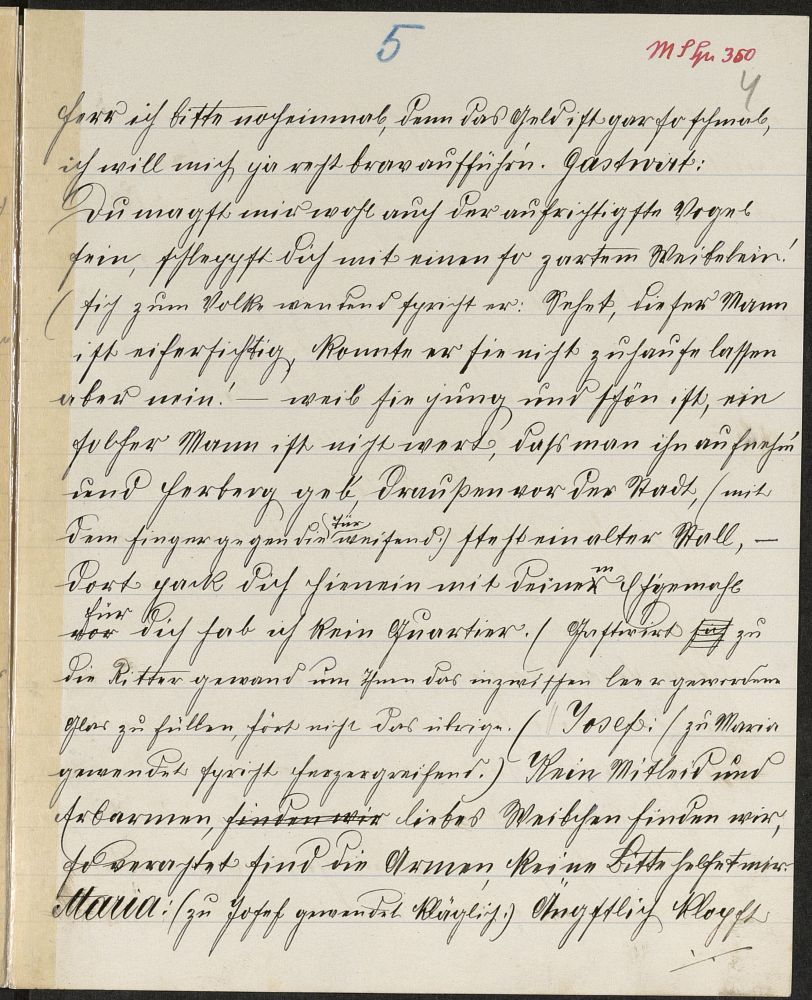 5
MS Gu 350
4
Herr ich bitte nocheinmal, denn das Geld ist gar so schmal,
ich will mich ja recht brav aufführn. Gastwirt:
Du magst mir wohl auch der aufrichtigste Vogel
sein, schleppst dich mit einen so zartem Weibelein!
(sich zum Volke wendend spricht er: Sehet, dieser Mann
ist eifersichtig, konnte er sie nicht zuhause lassen
aber nein! — weil sie jung und schön ist, ein
solcher Mann ist nicht wert, dass man ihn aufnehm
und Herberg geb, draußen vor der Stadt, (mit
dem Finger gegen die Tür weisend:) steht ein alter Stall, —
dort pack dich hienein mit deinem Ehgemahl
für
vor dich hab ich kein Quartier. ( Gastwirt zu
die Ritter gewand um Ihnen das inzwischen leer gewordene
Glas zu füllen, hört nicht das übrige. ( Josef: ( zu Maria
gewendet spricht herzergreifend.) Kein Mitleid und
Erbarmen, finden wir liebes Weibchen finden wir,
so verachtet sind die Armen, keine Bitte helfet mir.
Maria: (zu Josef gewendet kläglich:) Ängstlich klopft